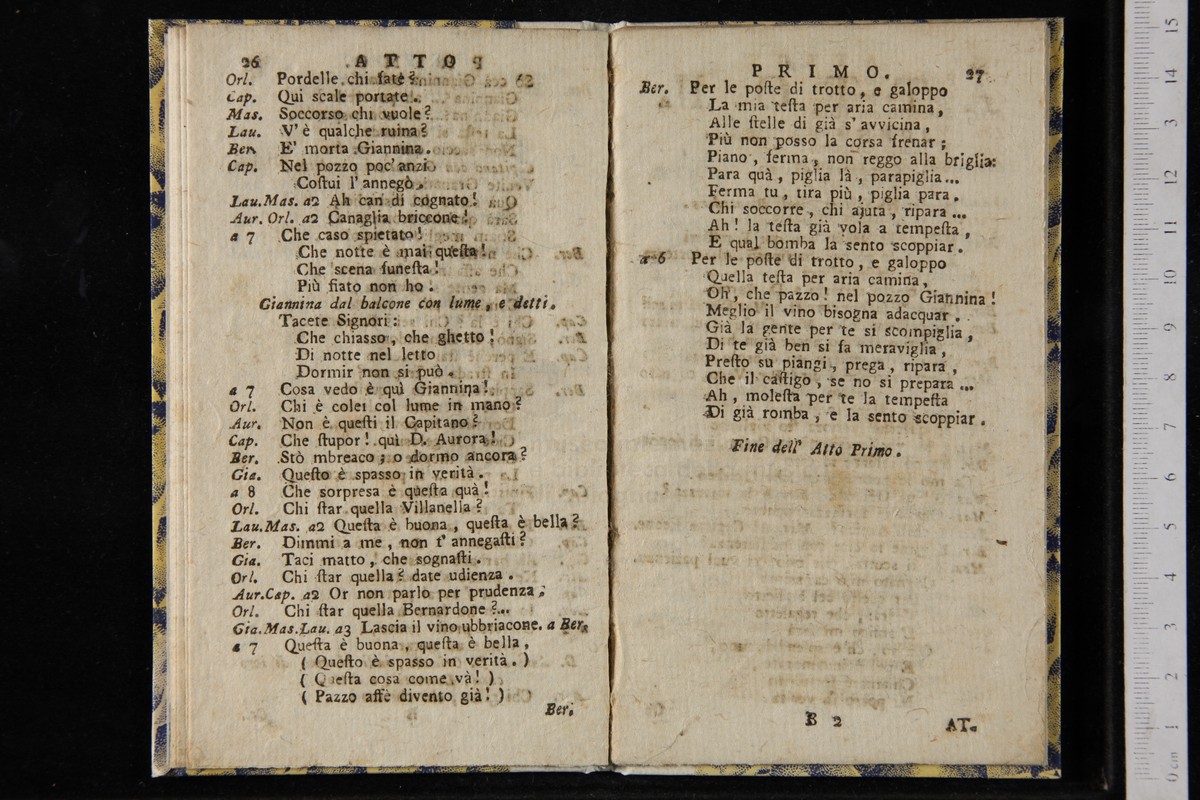 26 ATTO
Orl. Pordelle chi fate?
Cap. Qui scale portate.
Mas. Soccorso chi vuole?
Lau. V'è qualche ruina?
Ber. E' morta Giannina.
Cap. Nel pozzo poc'anzi
Coſtui l'annegò.
Lau.Mas. a2 Ah can di cognato!
Aur. Orl. a2 Canaglia briccone!
a 7 Che caso spietato!
Che notte è mai queſta!
Che scena funeſta!
Più fiato non ho.
Giannina dal balcone con lume, e detti.
Tacete Signori:
Che chiasso, che ghetto!
Di notte nel letto
Dormir non si può.
a 7 Cosa vedo è quì Giannina!
Orl. Chi è colei col lume in mano?
Aur. Non è queſti il Capitano?
Cap. Che ſtupor! quì D. Aurora!
Ber. Stò mbreaco; o dormo ancora?
Gia. Queſto è spasso in verità.
a 8 Che sorpresa è queſta quà!
Orl. Chi ſtar quella Villanella?
Lau.Mas. a2 Queſta è buona, queſta è bella?
Ber. Dimmi a me, non t'annegaſti?
Gia. Taci matto, che sognaſti.
Orl. Chi ſtar quella? date udienza.
Aur.Cap. a2 Or non parlo per prudenza;
Orl. Chi ſtar quella Bernardone?...
Gia.Mas.Lau. a3 Lascia il vino ubbriacone. a Ber.
a 7 Queſta è buona, queſta è bella,
( Queſto è spasso in verità. )
( Queſta cosa come và! )
( Pazzo affè divento già! )
Ber.
PRIMO. 27
Ber. Per le poſte di trotto, e galoppo
La mia teſta per aria camina,
Alle ſtelle di già s'avvicina,
Più non posso la corsa frenar;
Piano, ferma, non reggo alla briglia:
Para quà, piglia là, parapiglia...
Ferma tu, tira più, piglia para.
Chi soccorre, chi ajuta, ripara...
Ah! la teſta già vola a tempeſta,
E qual bomba la sento scoppiar.
a 6 Per le poſte di trotto, e galoppo
Quella teſta per aria camina,
Oh, che pazzo! nel pozzo Giannina!
Meglio il vino bisogna adacquar.
Già la gente per te si scompiglia,
Di te già ben si fa meraviglia,
Preſto su piangi, prega, ripara,
Che il caſtigo, se no si prepara...
Ah, moleſta per te la tempeſta
Di già romba, e la sento scoppiar.
Fine dell' Atto Primo.
B 2 AT.
0 cm 1 2 3 4 5 6 7 8 9 10 11 12 13 14 15